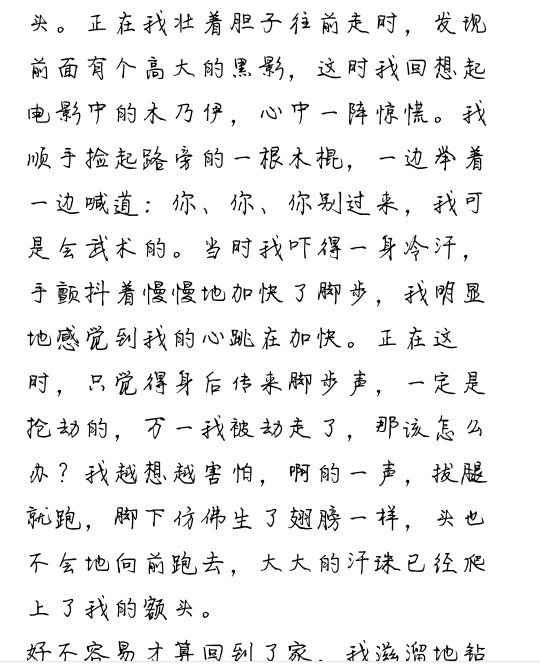 头。正在我壮着胆子往前走时，发现
前面有个高大的黑影，这时我回想起
电影中的木乃伊，心中一阵惊慌。我
顺手捡起路旁的一根木棍，一边举着
一边喊道：你、你、你别过来，我可
是会武术的。当时我吓得一身冷汗，
手颤抖着慢慢地加快了脚步，我明显
地感觉到我的心跳在加快。正在这
时，只觉得身后传来脚步声，一定是
抢劫的，万一我被劫走了，那该怎么
办？我越想越害怕，啊的一声，拔腿
就跑，脚下仿佛生了翅膀一样，头也
不会地向前跑去，大大的汗珠已经爬
上了我的额头。
好不容易才算回到了家，我滋溜地钻